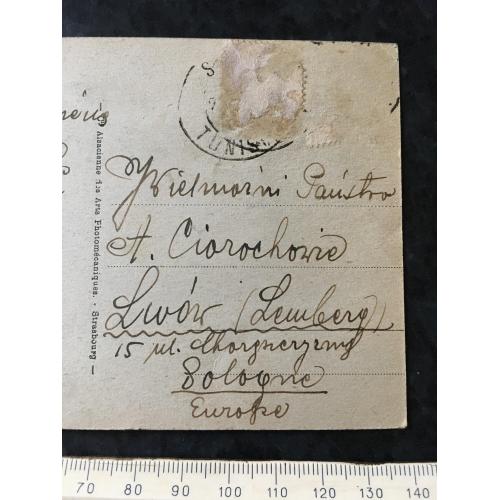 TUNIS
Cie Alsacienne des Arts Photomécaniques. - Strasbourg —
Wielmożni Państwo
A. Ciorochowie
Lwów (Lemberg)
15 ul.
Pologne
Europe
70 80 90 100 110 120 130 140